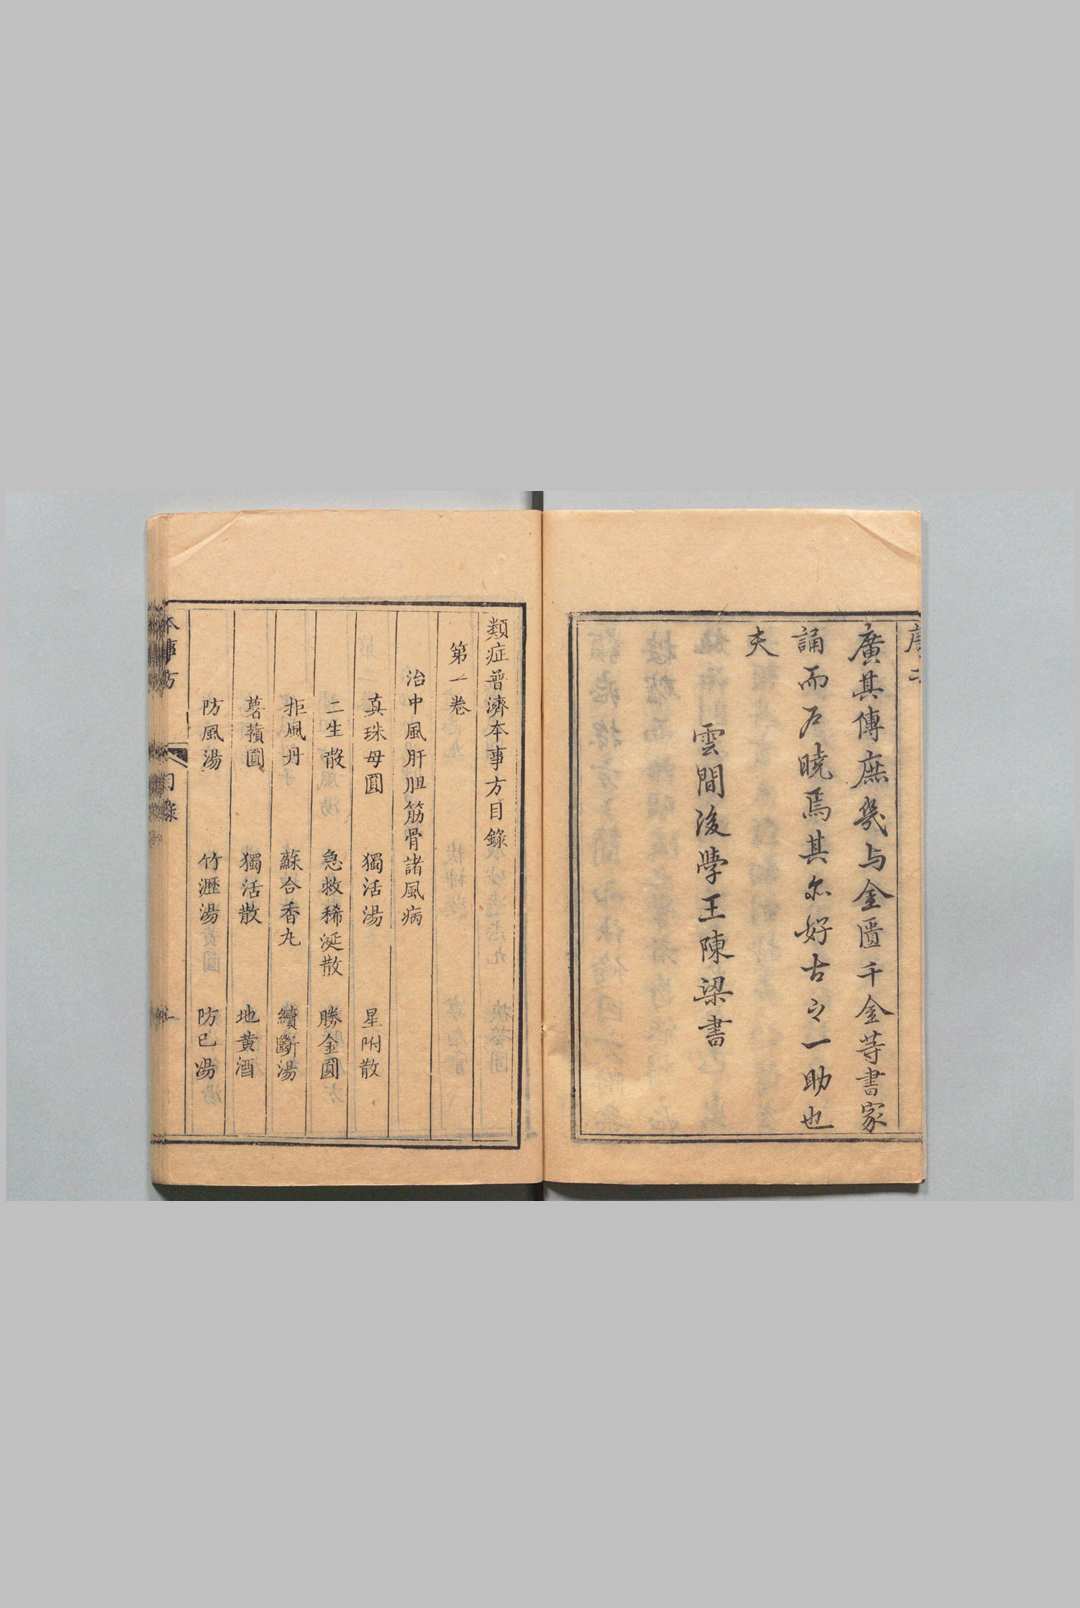 廣其傳庶幾与金匱千金等書家
誦而户曉焉其亦好古之一助也
夫
雲間後學王陳梁書
類症普濟本事方目錄
第一卷
治中風肝胆筋骨諸風病
真珠母圓　獨活湯　星附散
二生散　急救稀涎散　勝金圓
拒風丹　蘇合香丸　續斷湯
獨活散　地黄酒
防風湯　竹瀝湯　防已湯
本事方　目錄　一